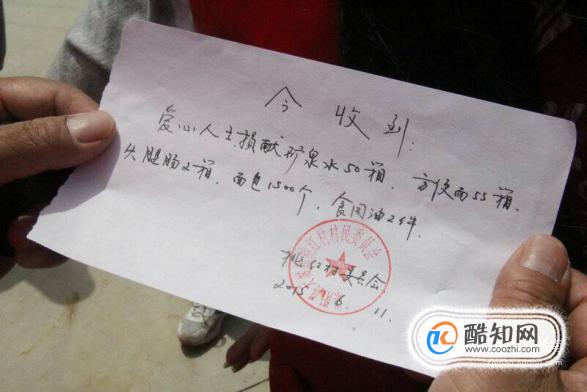 今收到:
爱心人士捐献矿泉水50箱、方便面55箱、
火腿肠2箱、面包1500个、食用油2件.
村村民委员会
桃红村委员会
2015 6. 11.
酷知网
www.coozhi.com